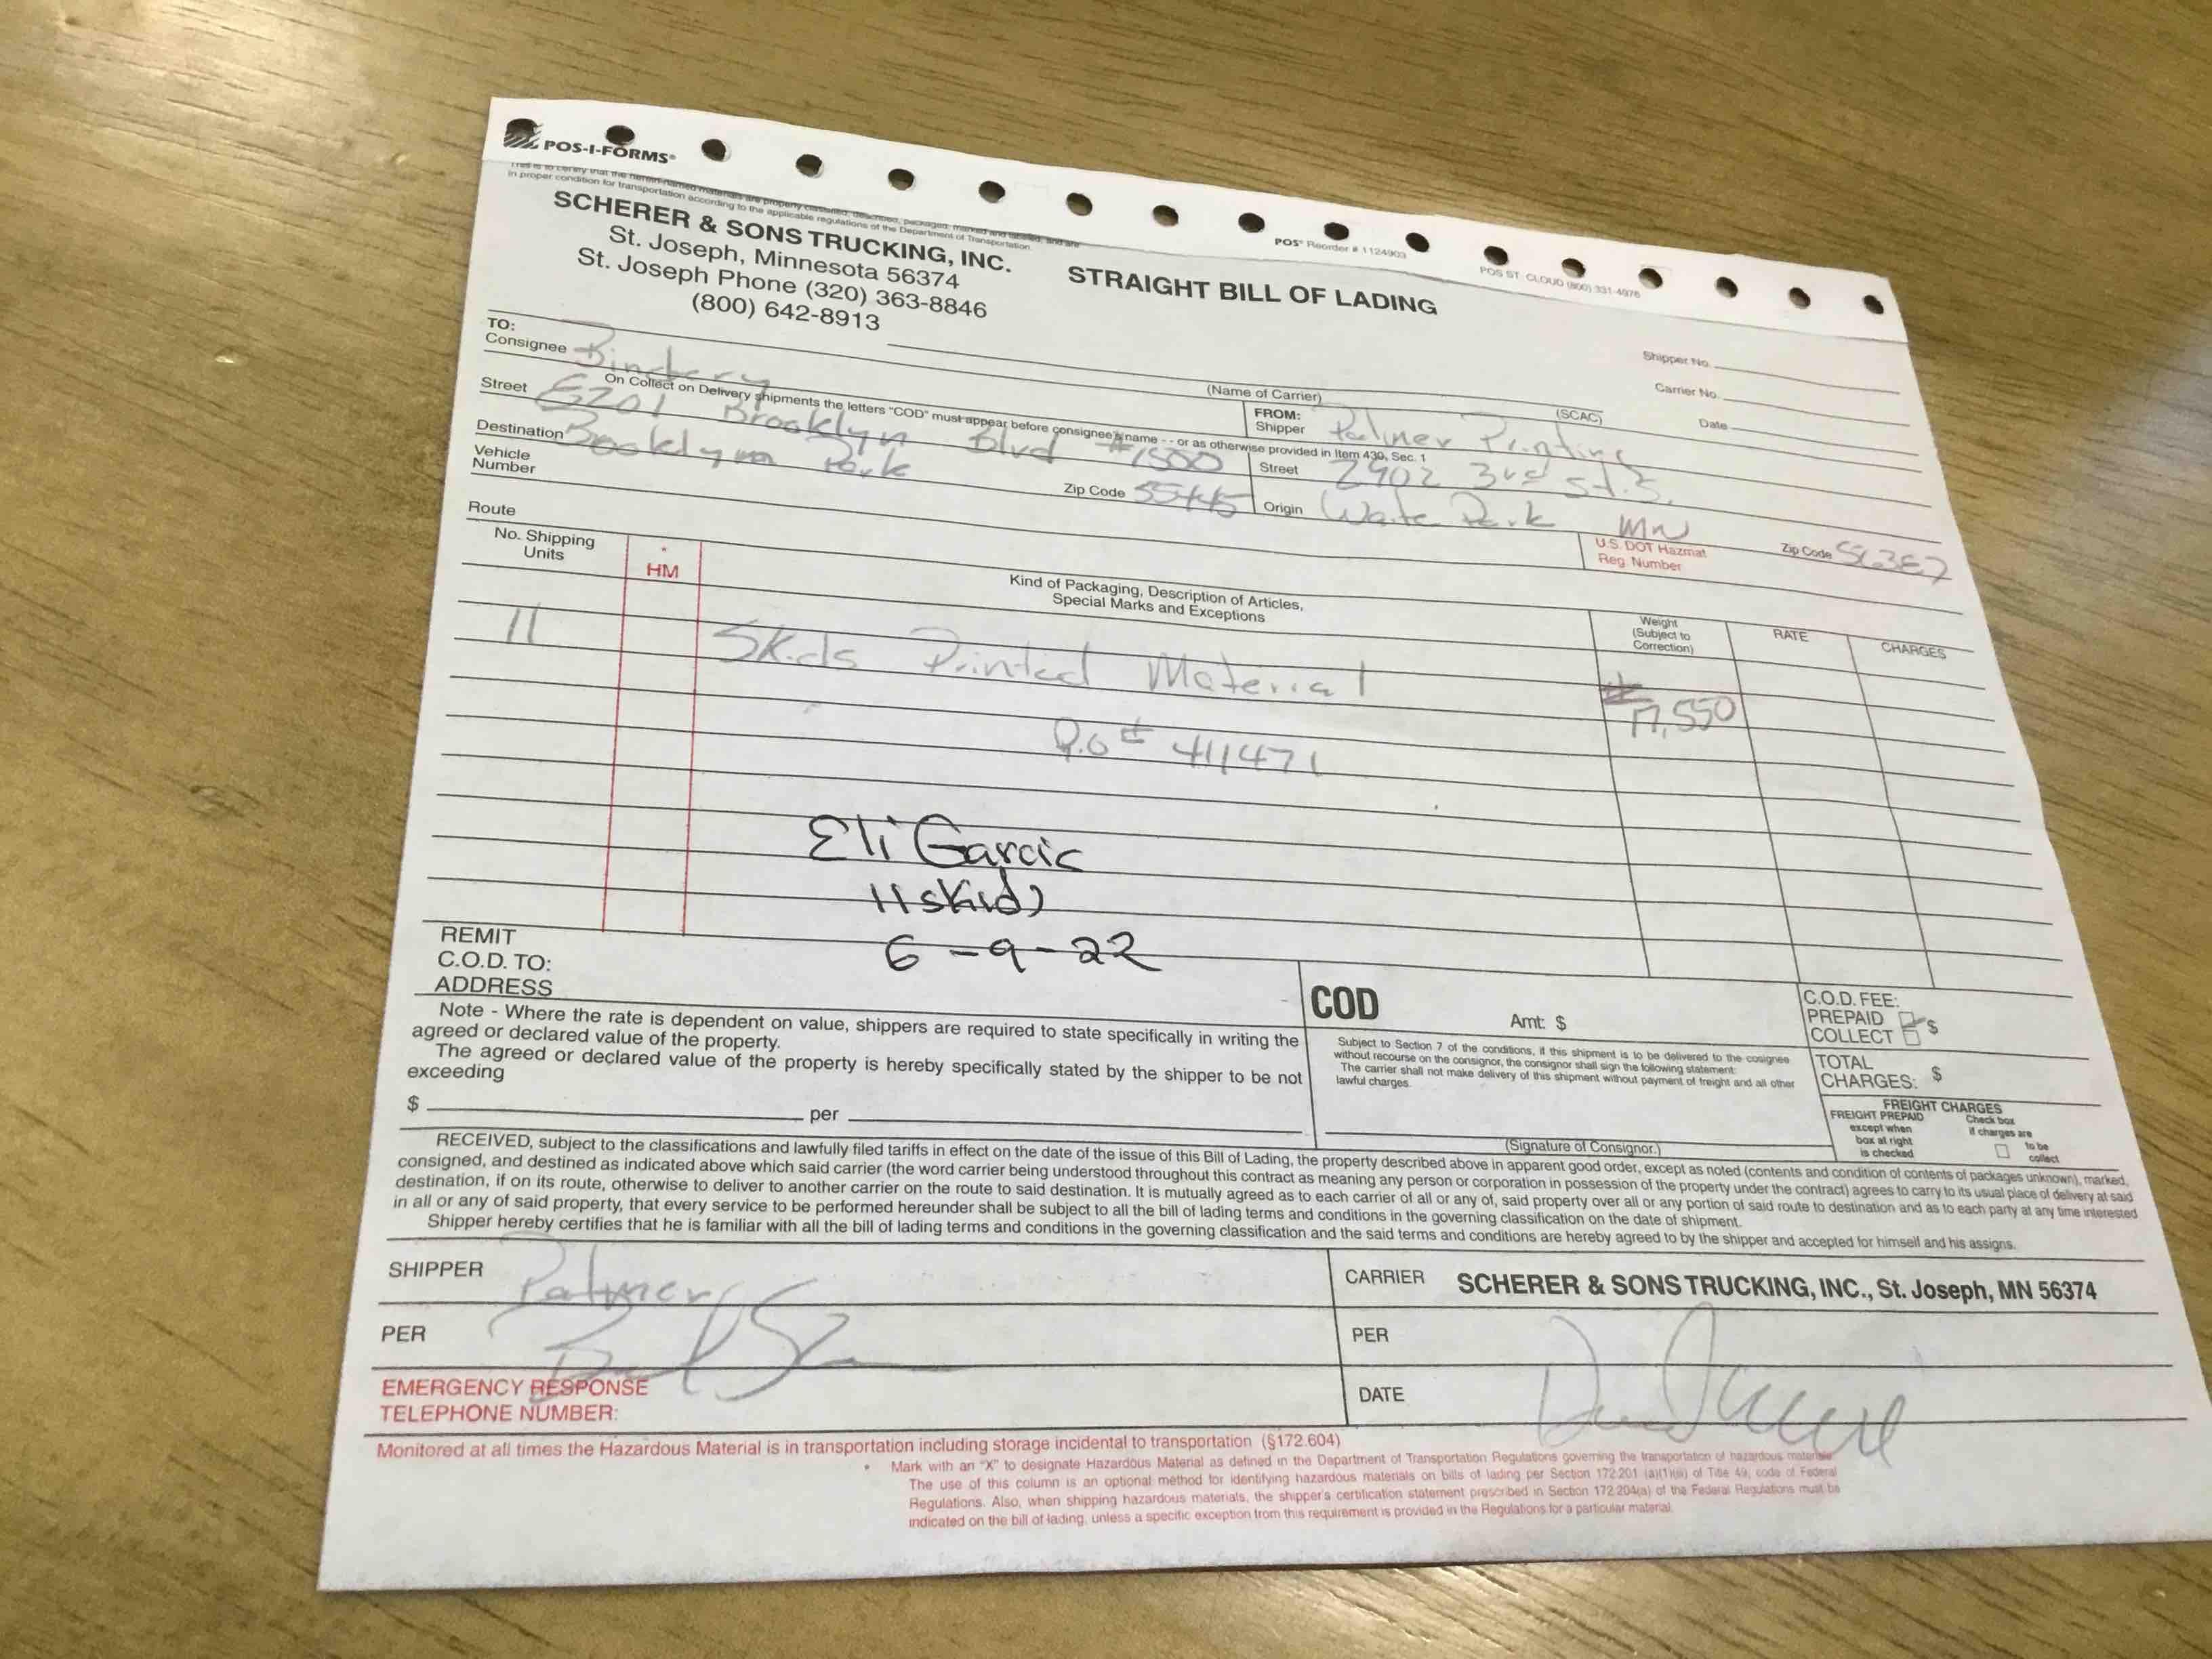 POS-I-FORMS®
This is to certify that the herein-named materials are properly classified, described, packaged, marked and labeled, and are
in proper condition for transportation according to the applicable regulations of the Department of Transportation
POS® Reorder # 1124903
POS ST. CLOUD (800) 331-4976
SCHERER & SONS TRUCKING, INC.
St. Joseph, Minnesota 56374
St. Joseph Phone (320) 363-8846
(800) 642-8913
STRAIGHT BILL OF LADING
Shipper No.
Carrier No.
Date
(Name of Carrier)
(SCAC)
TO:
Consignee Bindery
On Collect on Delivery shipments the letters "COD" must appear before consignee's name - - or as otherwise provided in Item 430, Sec. 1
FROM:
Shipper Palmer Printing
Street 6201 Brooklyn Blvd #1500
Street 2902 3rd St. S.
Destination Brooklyn Park
Zip Code 55445
Origin Waite Park MN
Zip Code 56387
Vehicle
Number
U.S. DOT Hazmat
Reg. Number
Route
No. Shipping
Units
*
HM
Kind of Packaging, Description of Articles,
Special Marks and Exceptions
Weight
(Subject to
Correction)
RATE
CHARGES
11 Skids Printed Material
17,550
P.O # 411471
Eli Garcia
11 skids
6-9-22
REMIT
C.O.D. TO:
ADDRESS
COD
Amt: $
C.O.D. FEE:
PREPAID
COLLECT $
Note - Where the rate is dependent on value, shippers are required to state specifically in writing the
agreed or declared value of the property.
The agreed or declared value of the property is hereby specifically stated by the shipper to be not
exceeding
$ per
Subject to Section 7 of the conditions, if this shipment is to be delivered to the cosignee
without recourse on the consignor, the consignor shall sign the following statement:
The carrier shall not make delivery of this shipment without payment of freight and all other
lawful charges.
(Signature of Consignor.)
TOTAL
CHARGES: $
FREIGHT CHARGES
FREIGHT PREPAID
except when
box at right
is checked
Check box
if charges are
to be
collect
RECEIVED, subject to the classifications and lawfully filed tariffs in effect on the date of the issue of this Bill of Lading, the property described above in apparent good order, except as noted (contents and condition of contents of packages unknown), marked,
consigned, and destined as indicated above which said carrier (the word carrier being understood throughout this contract as meaning any person or corporation in possession of the property under the contract) agrees to carry to its usual place of delivery at said
destination, if on its route, otherwise to deliver to another carrier on the route to said destination. It is mutually agreed as to each carrier of all or any of, said property over all or any portion of said route to destination and as to each party at any time interested
in all or any of said property, that every service to be performed hereunder shall be subject to all the bill of lading terms and conditions in the governing classification on the date of shipment.
Shipper hereby certifies that he is familiar with all the bill of lading terms and conditions in the governing classification and the said terms and conditions are hereby agreed to by the shipper and accepted for himself and his assigns.
SHIPPER Palmer
CARRIER SCHERER & SONS TRUCKING, INC., St. Joseph, MN 56374
PER
PER
EMERGENCY RESPONSE
TELEPHONE NUMBER:
DATE
Monitored at all times the Hazardous Material is in transportation including storage incidental to transportation (§172.604)
* Mark with an "X" to designate Hazardous Material as defined in the Department of Transportation Regulations governing the transportation of hazardous materials.
The use of this column is an optional method for identifying hazardous materials on bills of lading per Section 172.201 (a)(1)(iii) of Title 49, code of Federal
Regulations. Also, when shipping hazardous materials, the shipper's certification statement prescribed in Section 172.204(a) of the Federal Regulations must be
indicated on the bill of lading, unless a specific exception from this requirement is provided in the Regulations for a particular material.